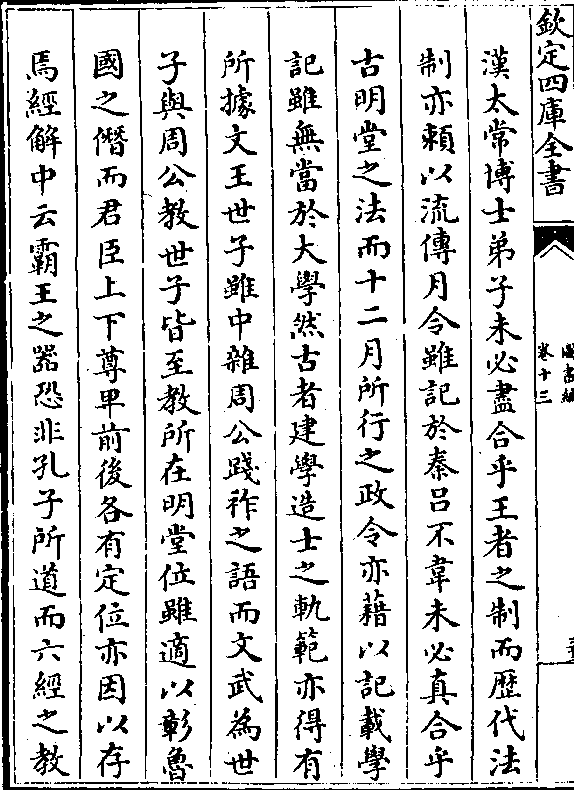 欽定四庫全書
卷十三
漢太常博士弟子未必盡合乎王者之制而歴代法
制亦頼以流傳月令雖記於秦吕不韋未必真合乎
古明堂之法而十二月所行之政令亦藉以記載學
記雖無當於大學然古者建學造士之軌範亦得有
所據文王世子雖中雜周公踐祚之語而文武為世
子與周公教世子皆至教所在明堂位雖適以彰魯
國之僭而君臣上下尊卑前後各有定位亦因以存
焉經解中云霸王之器恐非孔子所道而六經之教